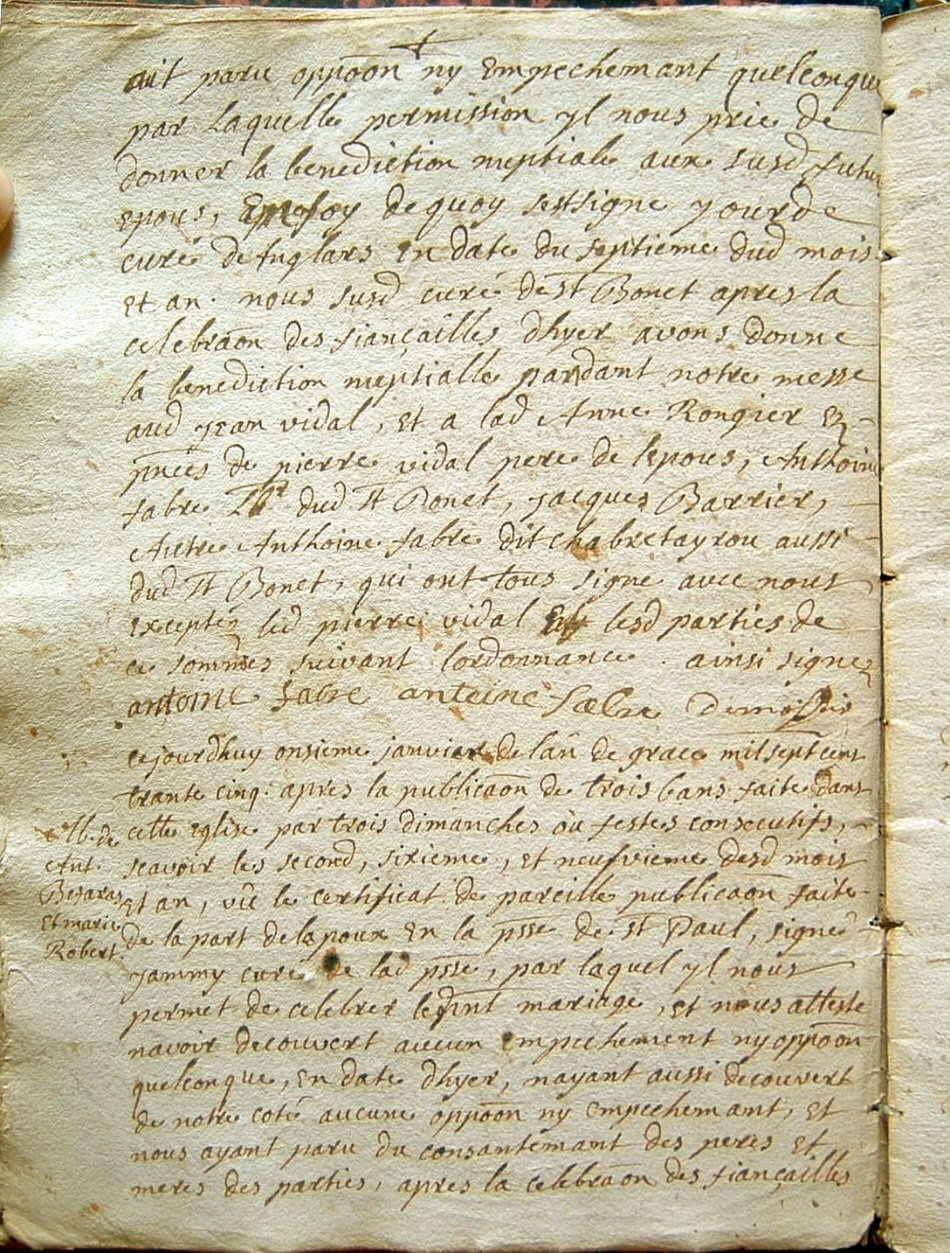 ait paru oppoon ny Empechemant quelconque
par Laquelle permission yl nous prie de
donner la benediction nuptiale aux susd futur
epous, En foy de quoy s'est signe yourde
curé De Anglars en date du septieme dud mois
et an. nous susd curé de st Bonet apres la
celebraon des fiançailles dhyer avons donne
la benediction nuptialle pandant notre messe
aud jean vidal, et a lad Anne Rongier en
pnces de pierre vidal pere de lepous, Anthoine
fabre dud st Bonet, jacques Barrier,
Autre Anthoine fabre dit chabretayrou aussi
dud st Bonet, qui ont tous signe avec nous
excepté led pierre vidal et lesd parties de
ce sommés suivant lordonnance. ainsi signe
antoine fabre antoine fabre
cejourdhuy onsieme janvier de lan de grace mil sept cens
trante cinq. apres la publicaon de trois bans faite dans
cette Eglise par trois dimanches ou festes consecutifs,
scavoir les second, sixieme, et neufvieme desd mois
et an, vû le certificat de pareille publicaon faite
de la part de lapoux en la psse de st Paul, signé
jammy curé de lad psse, par laquel yl nous
permet de celebrer le pnt mariage, et nous atteste
navoir decouvert aucun empechement ny oppoon
quelconque, en date dhyer, nayant aussi decouvert
de notre coté aucune oppoon ny empechemant, et
nous ayant paru du consantemant des peres et
meres des parties, apres la celebraon des fiançailles
M. de
Ant.
Befaras
et marie
Robert.